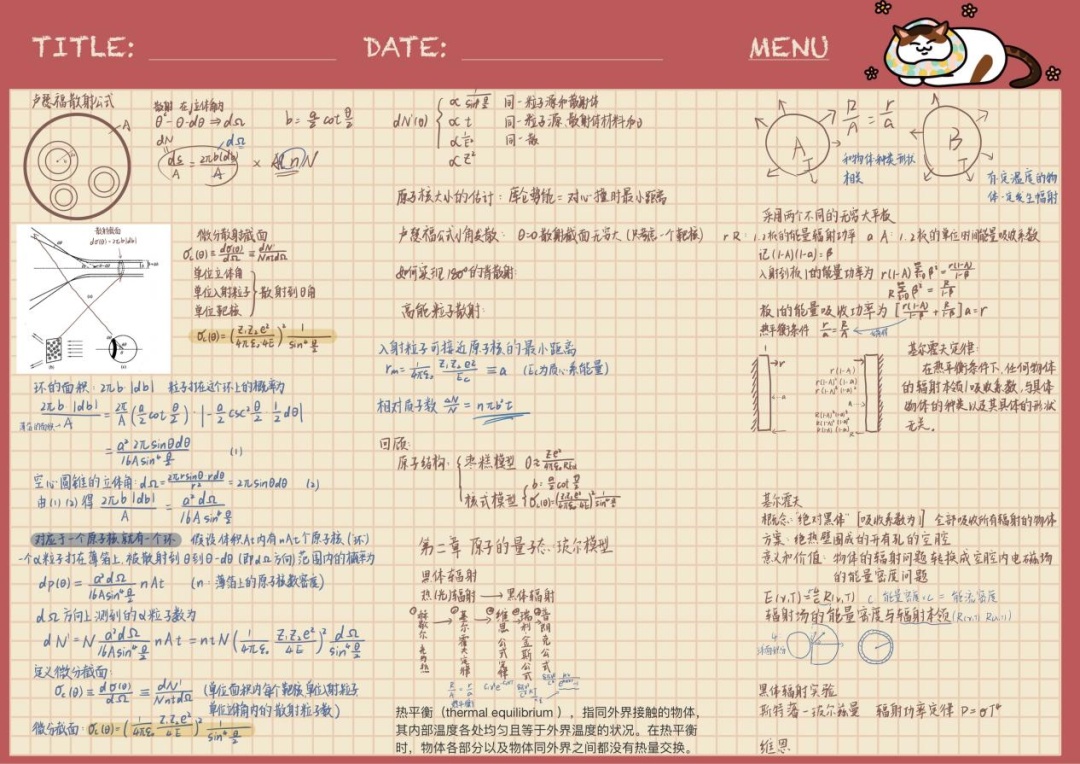 TITLE:
DATE:
MENU
卢瑟福散射公式
散射 在 立体角内
θ - θ-dθ ⇒ dΩ
b = a/2 cot θ/2
A
dN dΩ
ds/A = 2πb|db|/A × nN
散射截面
dσ(θ)=2πb|db|
微分散射截面
σc(θ) = dσ(θ)/dΩ = dN'/NntdΩ
单位立体角
单位入射粒子 } 散射到θ角
单位靶核
σc(θ) = (Z₁Z₂e²/4πε₀4E)² 1/sin⁴θ/2
环的面积: 2πb |db| 粒子打在这个环上的概率为
2πb |db|/A = 2π/A (a/2 cot θ/2) · |-a/2 csc² θ/2 · 1/2 dθ|
= a² 2π sinθdθ/16A sin³ θ/2 (1)
空心圆锥的立体角: dΩ = 2πrsinθ·rdθ/r² = 2πsinθdθ (2)
由(1)(2)得 2πb|db|/A = a²dΩ/16A sin⁴ θ/2
对应于一个原子核就有一个环 假设体积At内有nAt个原子核(环)
一个α粒子打在薄箔上,被散射到θ到θ-dθ(即dΩ方向)范围内的概率为
dp(θ) = a²dΩ/16Asin⁴θ/2 nAt (n: 薄箔上的原子核数密度)
dΩ方向上测到的α粒子数为
dN' = N a²dΩ/16Asin⁴θ/2 nAt = ntN (1/4πε₀ Z₁Z₂e²/4E)² dΩ/sin⁴θ/2
定义微分截面:
σc(θ) ≡ dσ(θ)/dΩ ≡ dN'/NntdΩ (单位面积内每个靶核,单位入射粒子
单位立体角内的散射粒子数)
微分截面: σc(θ) = (1/4πε₀ Z₁Z₂e²/4E)² 1/sin⁴θ/2
dN'(θ) { ∝ 1/sin⁴θ/2 同一粒子源和散射体
∝ t 同一粒子源,散射体材料
∝ 1/E² 同一散
∝ Z²
原子核大小的估计: 库仑势能 = 对心撞时最小距离
卢瑟福公式小角发散: θ=0 散射截面无穷大 (只考虑一个靶核)
如何实现180°的背散射
高能粒子散射:
入射粒子可接近原子核的最小距离
rm = 1/4πε₀ Z₁Z₂e²/Ec ≡ a (Ec为质心系能量)
相对原子数 ΔN/N = nπb²t
回顾:
原子结构: { 枣糕模型
b = a/2 cot θ/2
核式模型 { σc(θ)=(Z₁Z₂e²/4πε₀4E)² 1/sin⁴θ/2
第二章 原子的量子态: 玻尔模型
黑体辐射
热(光)辐射 → 黑体辐射
基尔霍夫定律
维恩公式
瑞利金斯公式
普朗克公式
热平衡(thermal equilibrium),指同外界接触的物体,
其内部温度各处均匀且等于外界温度的状况。在热平衡
时,物体各部分以及物体同外界之间都没有热量交换。
R/A = r/a
A T
B T
和物体种类形状
相关
有一定温度的物
体一定发生辐射
采用两个不同的无穷大平板
r R: 1.2板的能量辐射功率 a A: 1.2板的单位时间能量吸收系数
记(1-A)(1-a)=β
入射到板1的能量功率为 r(1-A) Σβⁿ = r(1-A)/1-β
RΣβⁿ = R/1-β
板1的能量吸收功率为 [r(1-A)/1-β + R/1-β]a = r
热平衡条件 r/a = R/A
基尔霍夫定律:
在热平衡条件下,任何物体
的辐射本领/吸收系数,与具体
物体的种类以及其具体的形状
无关。
基尔霍夫
概念: "绝对黑体" [吸收系数为1] 全部吸收所有辐射的物体
方案: 绝热壁围成的开有孔的空腔
意义和价值: 物体的辐射问题转换成空腔内电磁场
的能量密度问题
E(ν,T) = 4/c R(ν,T) c 能量密度·c = 能流密度
辐射场的能量密度与辐射本领
黑体辐射实验
斯特藩-玻尔兹曼 辐射功率定律 P = σT⁴
维恩